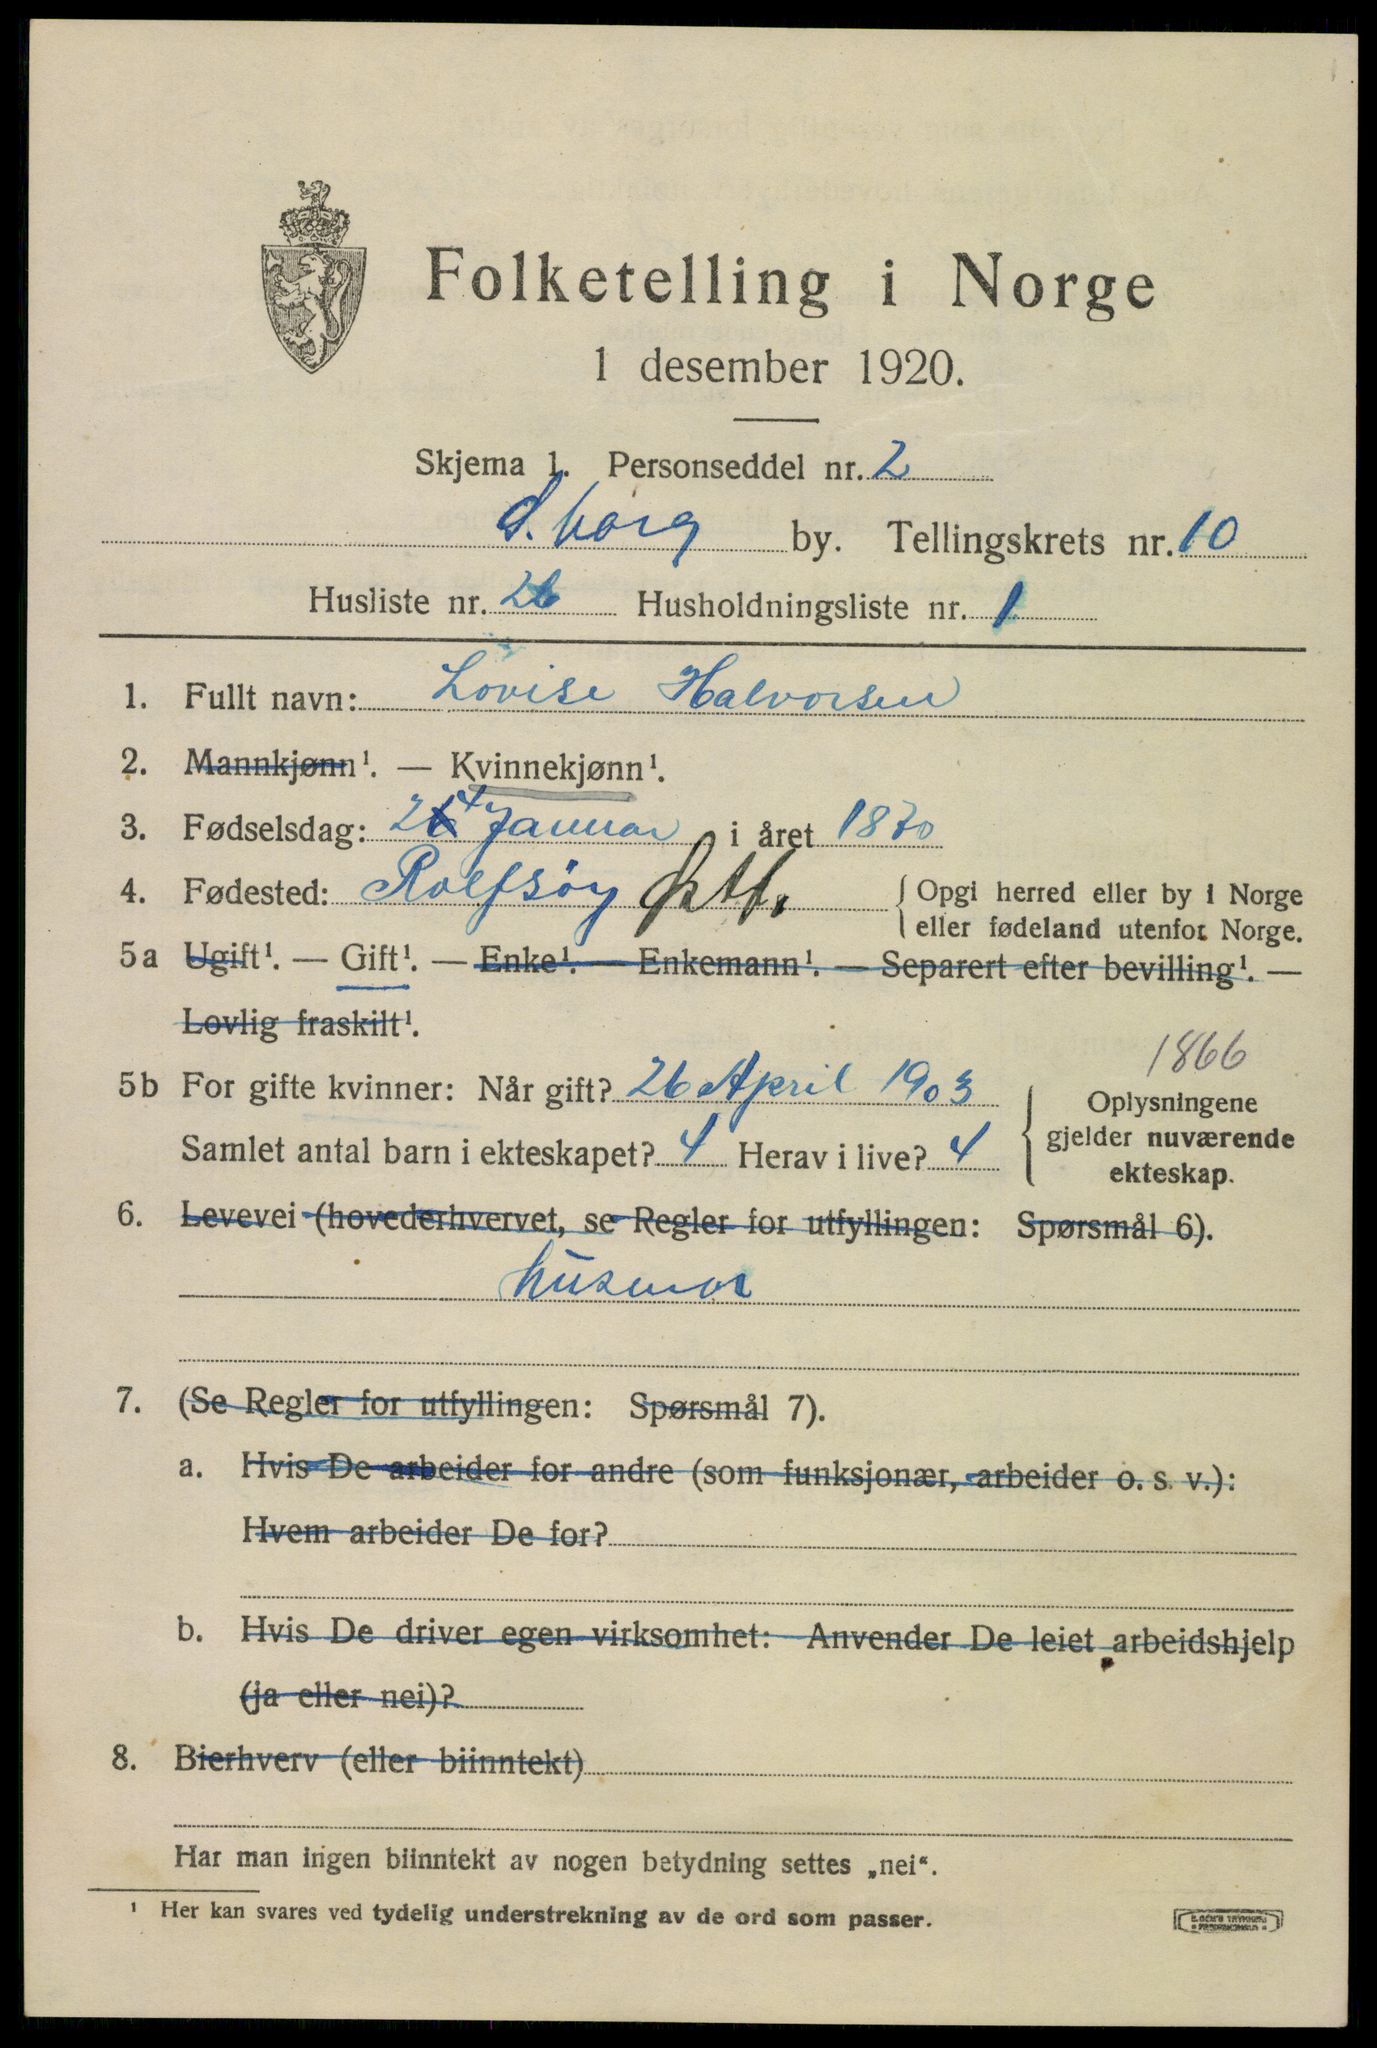 Folketelling i Norge
1 desember 1920.
Skjema 1. Personseddel nr. 2
S.borg by. Tellingskrets nr. 10
Husliste nr. 26 Husholdningsliste nr. 1
1. Fullt navn: Lovise Halvorsen
2. Mannkjønn¹. — Kvinnekjønn¹.
3. Fødselsdag: 24 Januar i året 1870
4. Fødested: Rolfsøy Øtf. { Opgi herred eller by i Norge
eller fødeland utenfor Norge.
5a Ugift¹. — Gift¹. — Enke¹. — Enkemann¹. — Separert efter bevilling¹. —
Lovlig fraskilt¹.
1866
5b For gifte kvinner: Når gift? 26 April 1903 { Oplysningene
gjelder nuværende
ekteskap.
Samlet antal barn i ekteskapet? 4 Herav i live? 4
6. Levevei (hovederhvervet, se Regler for utfyllingen: Spørsmål 6).
husmor
7. (Se Regler for utfyllingen: Spørsmål 7).
a. Hvis De arbeider for andre (som funksjonær, arbeider o. s. v.):
Hvem arbeider De for?
b. Hvis De driver egen virksomhet: Anvender De leiet arbeidshjelp
(ja eller nei)?
8. Bierhverv (eller biinntekt)
Har man ingen biinntekt av nogen betydning settes „nei“.
¹ Her kan svares ved tydelig understrekning av de ord som passer.